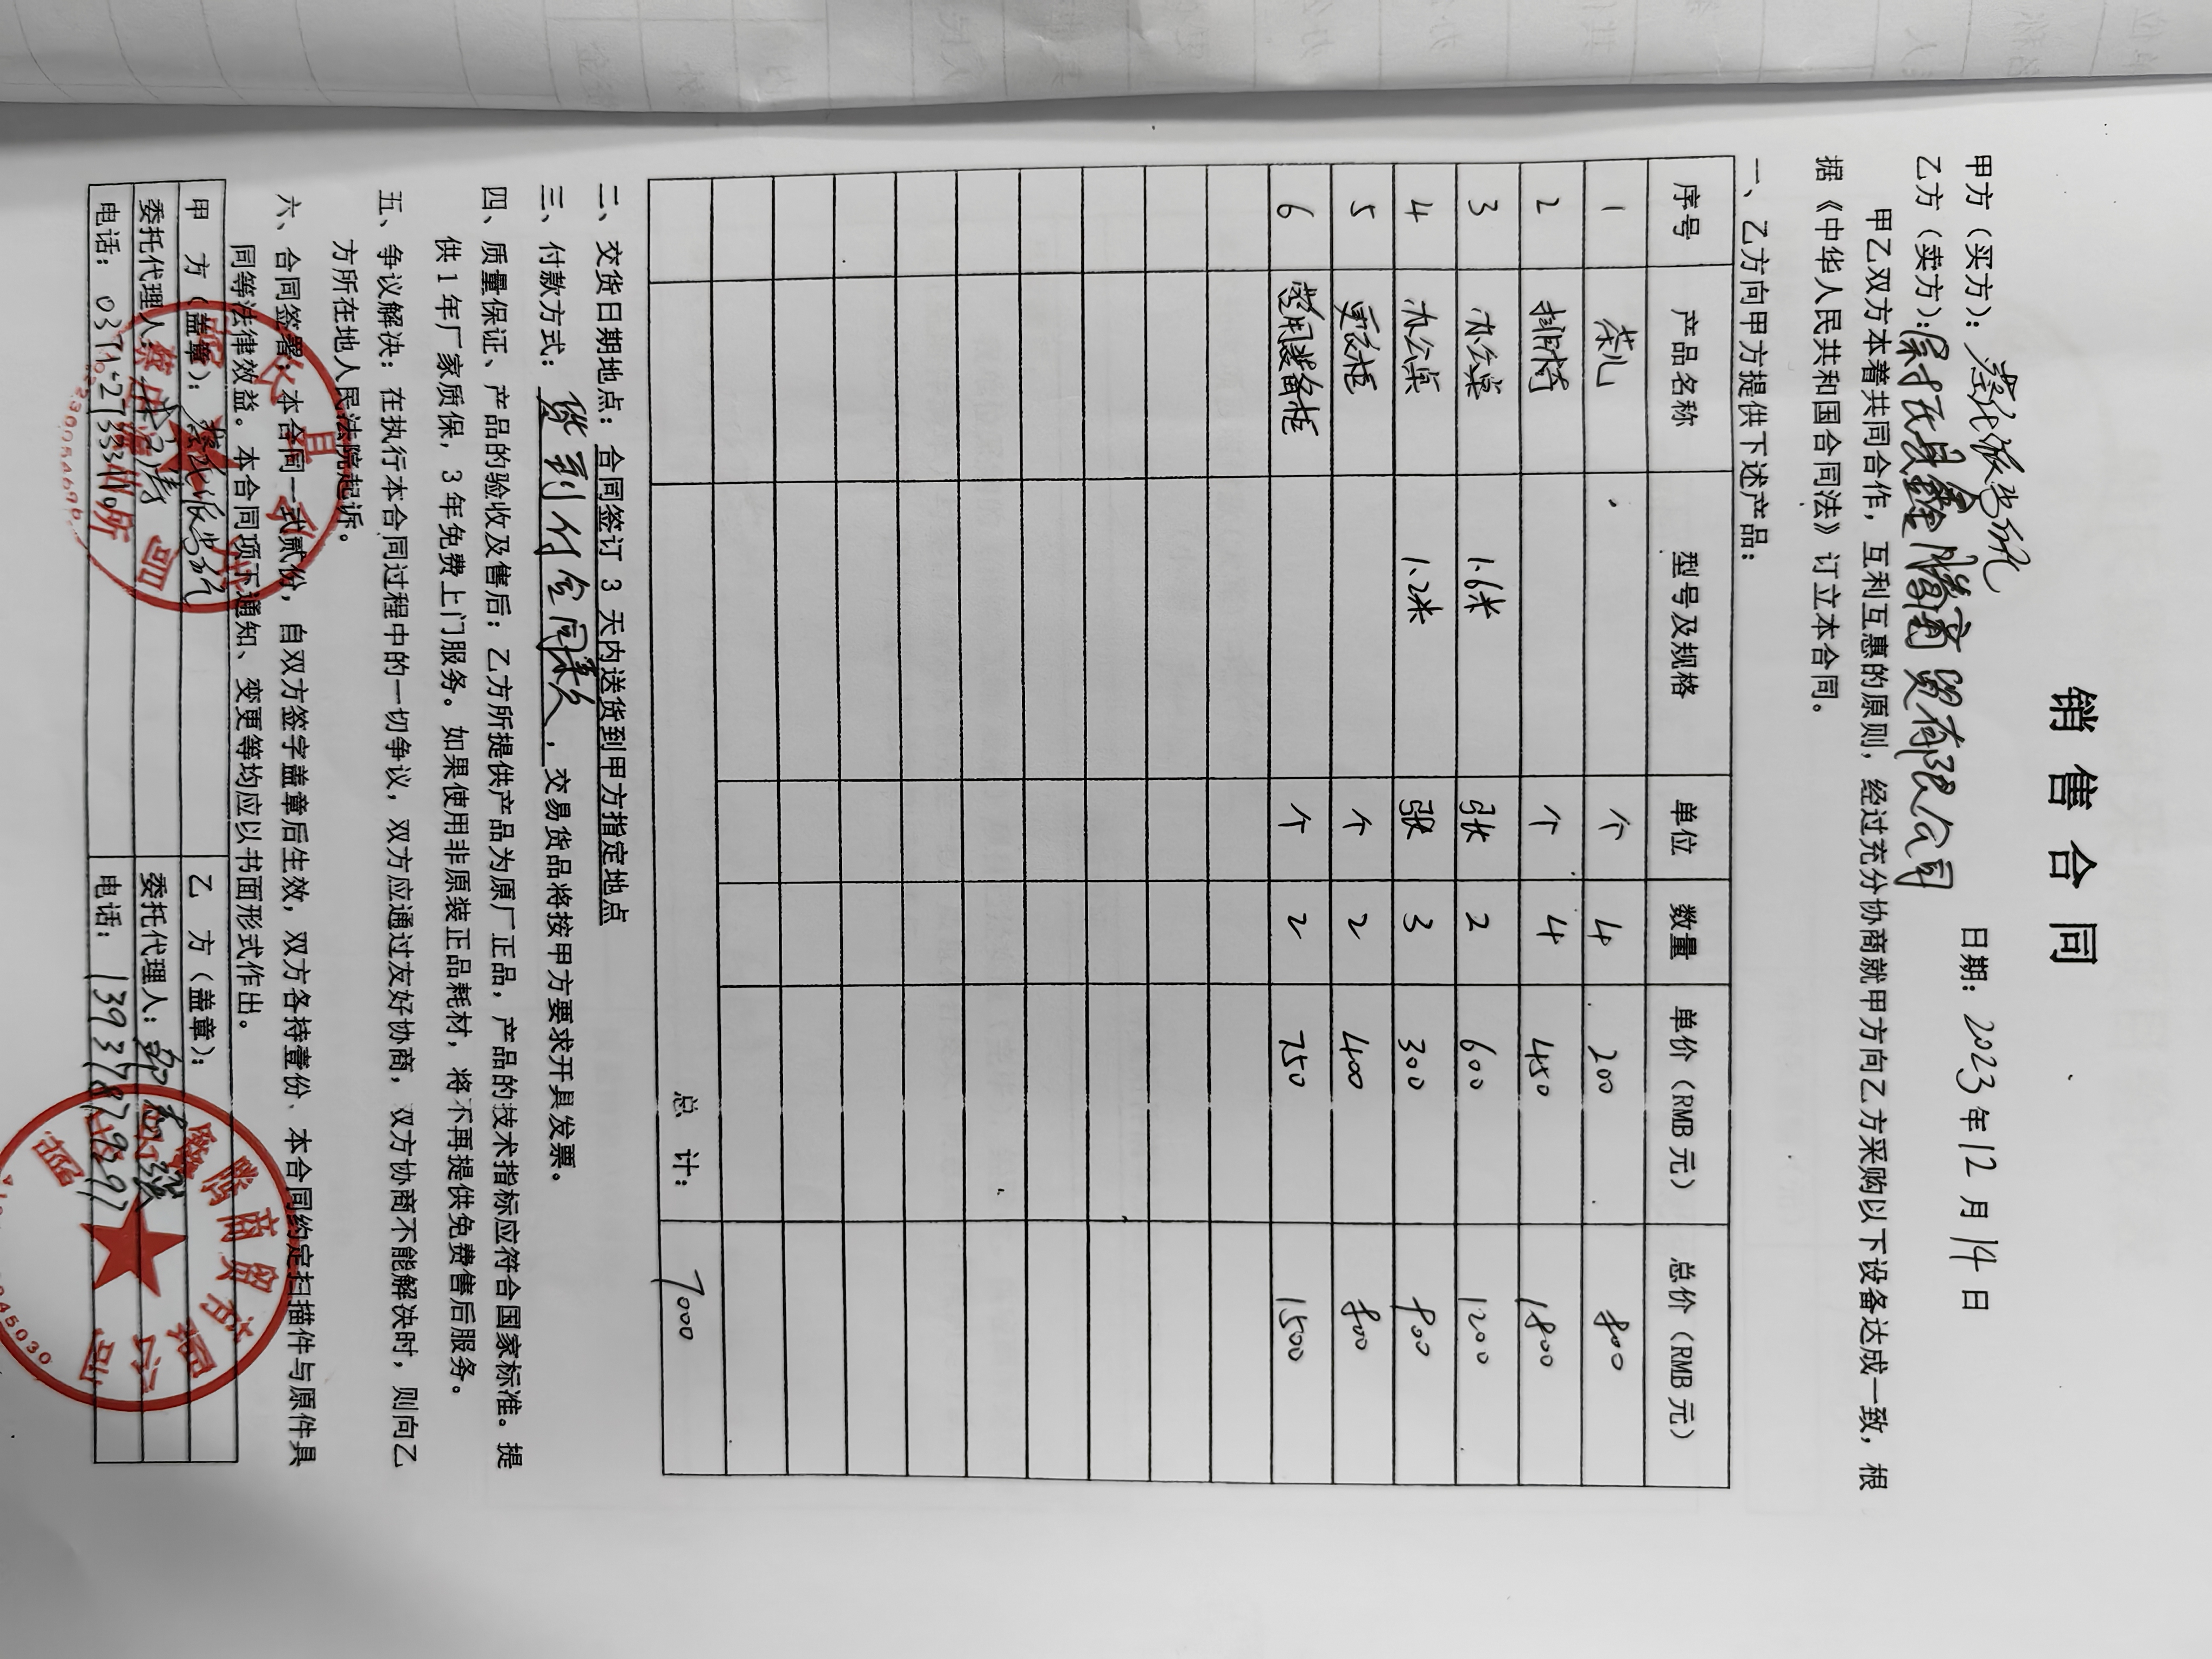 销售合同
甲方（买方）：蔡庄派出所 日期：2023年12月14日
乙方（卖方）：尉氏县鑫腾商贸有限公司
甲乙双方本着共同合作，互利互惠的原则，经过充分协商就甲方向乙方采购以下设备达成一致，根
据《中华人民共和国合同法》订立本合同。
一、乙方向甲方提供下述产品：
序号 产品名称 型号及规格 单位 数量 单价（RMB元） 总价（RMB元）
1 茶几 个 4 200 800
2 排椅 个 4 450 1800
3 办公桌 1.6米 张 2 600 1200
4 办公桌 1.2米 张 3 300 900
5 更衣柜 个 2 400 800
6 警用装备柜 个 2 750 1500
总 计： 7000
二、交货日期地点：合同签订 3 天内送货到甲方指定地点
三、付款方式：货到付合同款，交易货品将按甲方要求开具发票。
四、质量保证、产品的验收及售后：乙方所提供产品为原厂正品，产品的技术指标应符合国家标准。提
供1年厂家质保，3年免费上门服务。如果使用非原装正品耗材，将不再提供免费售后服务。
五、争议解决：在执行本合同过程中的一切争议，双方应通过友好协商，双方协商不能解决时，则向乙
方所在地人民法院起诉。
六、合同签署：本合同一式贰份，自双方签字盖章后生效，双方各持壹份、本合同约定扫描件与原件具
同等法律效益。本合同项下通知、变更等均应以书面形式作出。
甲 方（盖章）：蔡庄派出所 乙 方（盖章）：
委托代理人： 委托代理人：
电话：0371-27333110 电话：13937879297
鑫腾商贸有限公司